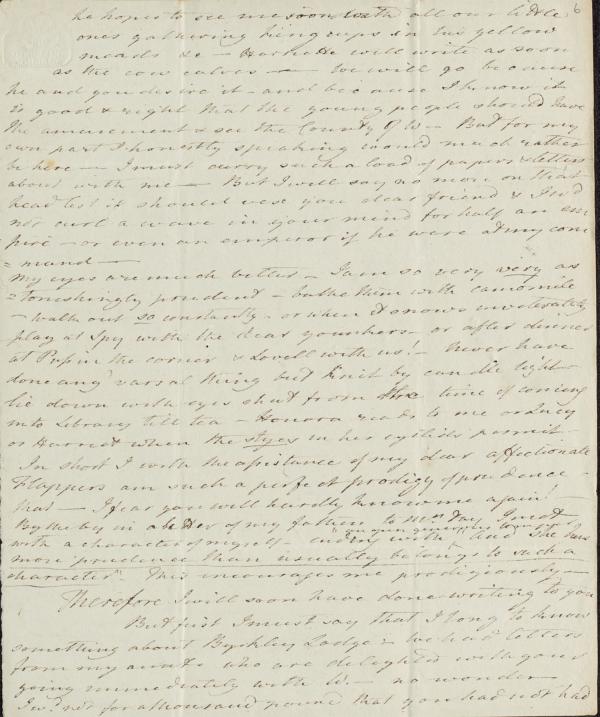 6
he hopes to see me soon with all our little
ones gathering king cups in his yellow
meads &c – Harriette will write as soon
as the cow calves — We will go because
he and you desire it – and because I know it
is good & right that the young people should have
the amusement & see the County of W— But for my
own part honestly speaking would much rather
be here — I must carry such a load of papers & letters
about with me — But I will say no more on that
head lest it should vex you dear friend & I wd
not curl a wave in your mind for half an em
pire – or even an emperor if he were at my com
=mand —
My eyes are much better – I am so very very as
=tonishingly prudent – bathe them with camomile
– walk out so constantly – or when it snows inveterately
play at Spy with the dear youngers – or after dinner
at Puss in the corner & Lovell with us! – Never have
done any varsal thing but knit by candle light –
lie down with eyes shut from the time of coming
into Library till tea – Honora reads to me or Lucy
or Harriet when the styes in her eyelids permit –
In short I with the assistance of my dear affectionate
Flappers am such a perfect prodigy of prudence
that — I fear you will hardly know me again! –
By the by in a letter of my fathers to Mrs I met
with a character of myself – ending with "and she has
more prudence than usually belongs to such a
character" This encourages me prodigiously —
Therefore I will soon have done writing to you
But just I must say that I long to know
something about Byrkley Lodge – we had letters
from my aunts who are delighted with your
going immediately with W. – no wonder –
I wd not for a thousand pound that you had not had